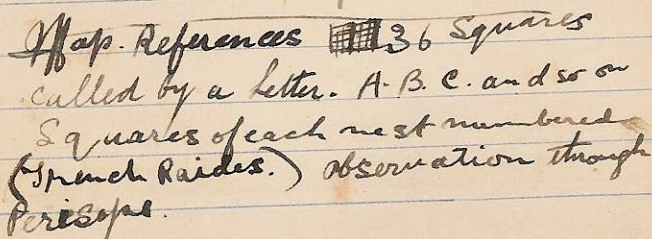 Map. References 36 Squares
called by a Letter. A. B. C. and so on
Squares of each nest numbered
(Trench Raides.) observation through
Perisope.